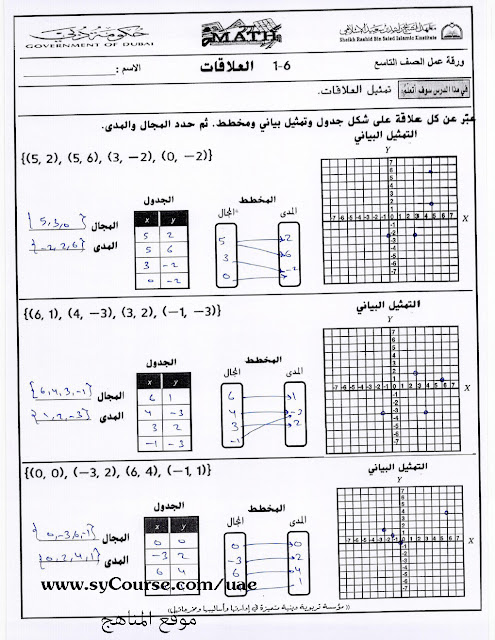 حكومة دبي
GOVERNMENT OF DUBAI
MATH
Sheikh Rashid Bin Saied Islamic Institute
ورقة عمل الصف التاسع
1-6 العلاقات
الاسم :
في هذا الدرس سوف أتعلم: تمثيل العلاقات.
عبّر عن كل علاقة على شكل جدول وتمثيل بياني ومخطط. ثم حدد المجال والمدى.
{(5, 2), (5, 6), (3, −2), (0, −2)}
التمثيل البياني
المخطط
المدى
المجال
الجدول
x y
5 2
5 6
3 -2
0 -2
5
3
0
2
6
-2
المجال {5,3,0}
المدى {-2,2,6}
Y
X
{(6, 1), (4, −3), (3, 2), (−1, −3)}
التمثيل البياني
المخطط
المدى
المجال
الجدول
x y
6 1
4 -3
3 2
-1 -3
6
4
3
-1
1
-3
2
المجال {6,4,3,-1}
المدى {1,2,-3}
Y
X
{(0, 0), (−3, 2), (6, 4), (−1, 1)}
التمثيل البياني
المخطط
المدى
المجال
الجدول
x y
0 0
-3 2
6 4
0
-3
6
0
2
4
1
المجال {0,-3,6,-1}
المدى {0,2,4,1}
Y
X
www.syCourse.com/uae
موقع المناهج